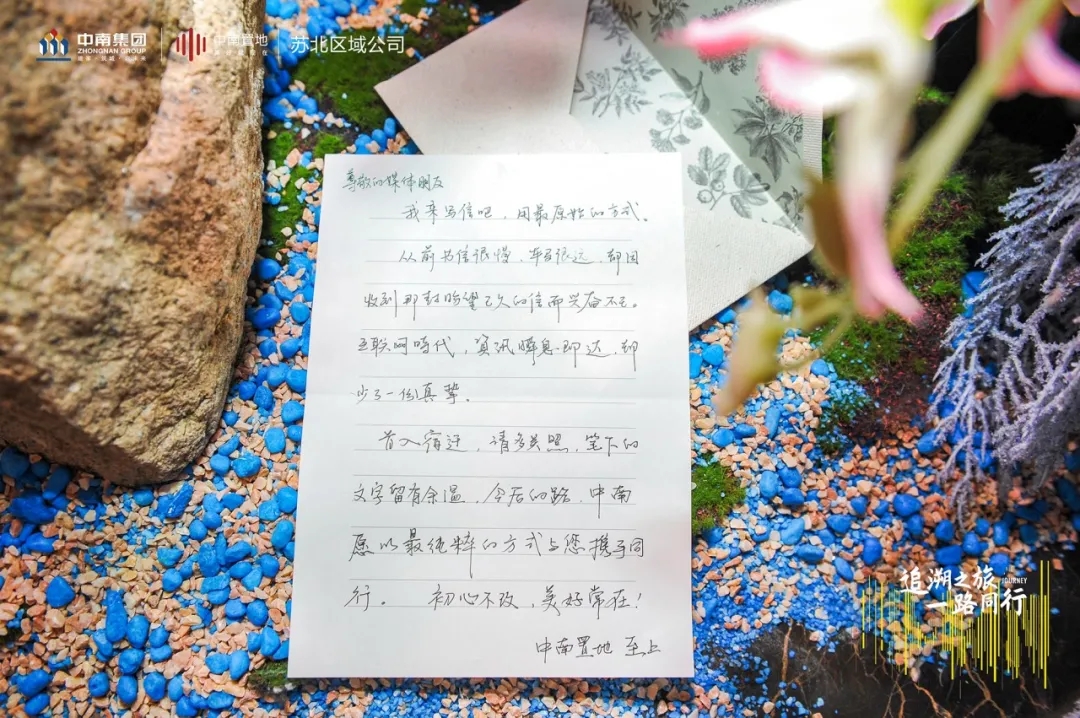 中南集团
ZHONGNAN GROUP
中南置地
苏北区域公司
尊敬的媒体朋友
我来写信吧，用最原始的方式。
从前书信很慢，车马很远，却因
收到那封盼望已久的信而兴奋不已。
互联网时代，资讯瞬息即达，却
少了一份真挚。
首入宿迁，请多关照，笔下的
文字留有余温，今后的路，中南
愿以最纯粹的方式与您携手同
行。 初心不改，美好常在！
中南置地 至上
追溯之旅
JOURNEY
一路同行